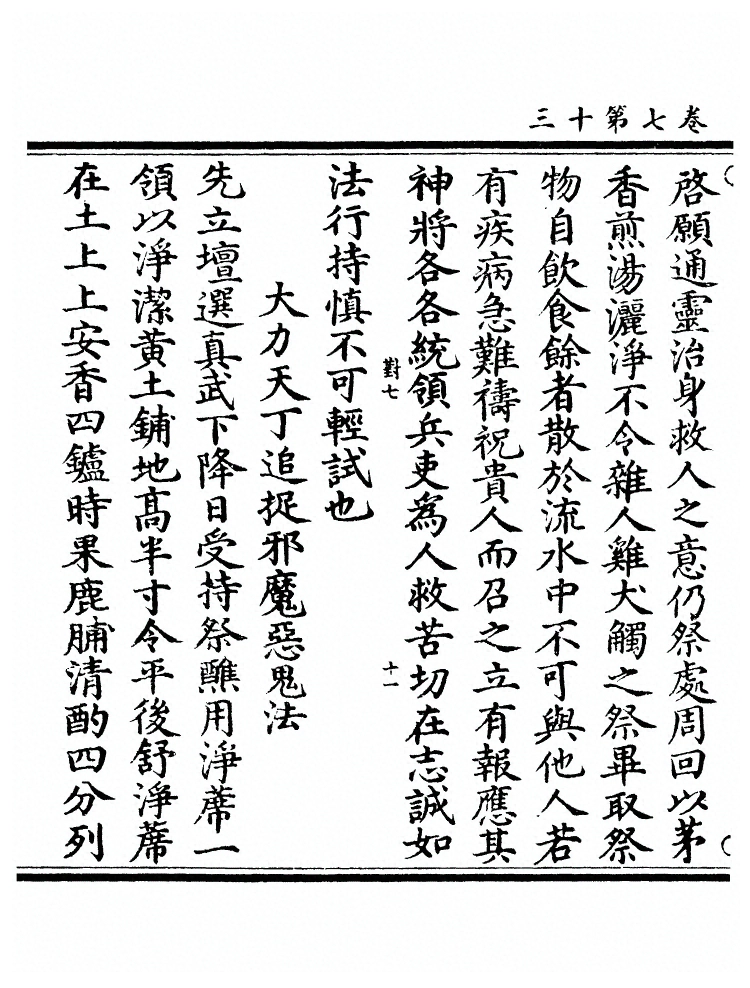 三十第七卷
啓願通靈治身救人之意仍祭處周回以茅
香煎湯灑淨不令雜人雞犬觸之祭畢取祭
物自飲食餘者散於流水中不可與他人若
有疾病急難禱祝貴人而召之立有報應其
神將各各統領兵吏為人救苦切在志誠如
對七
十一
法行持慎不可輕試也
大力天丁追捉邪魔惡鬼法
先立壇選真武下降日受持祭醮用淨蓆一
領以淨潔黃土鋪地高半寸令平後舒淨蓆
在土上上安香四鑪時果鹿脯清酌四分列